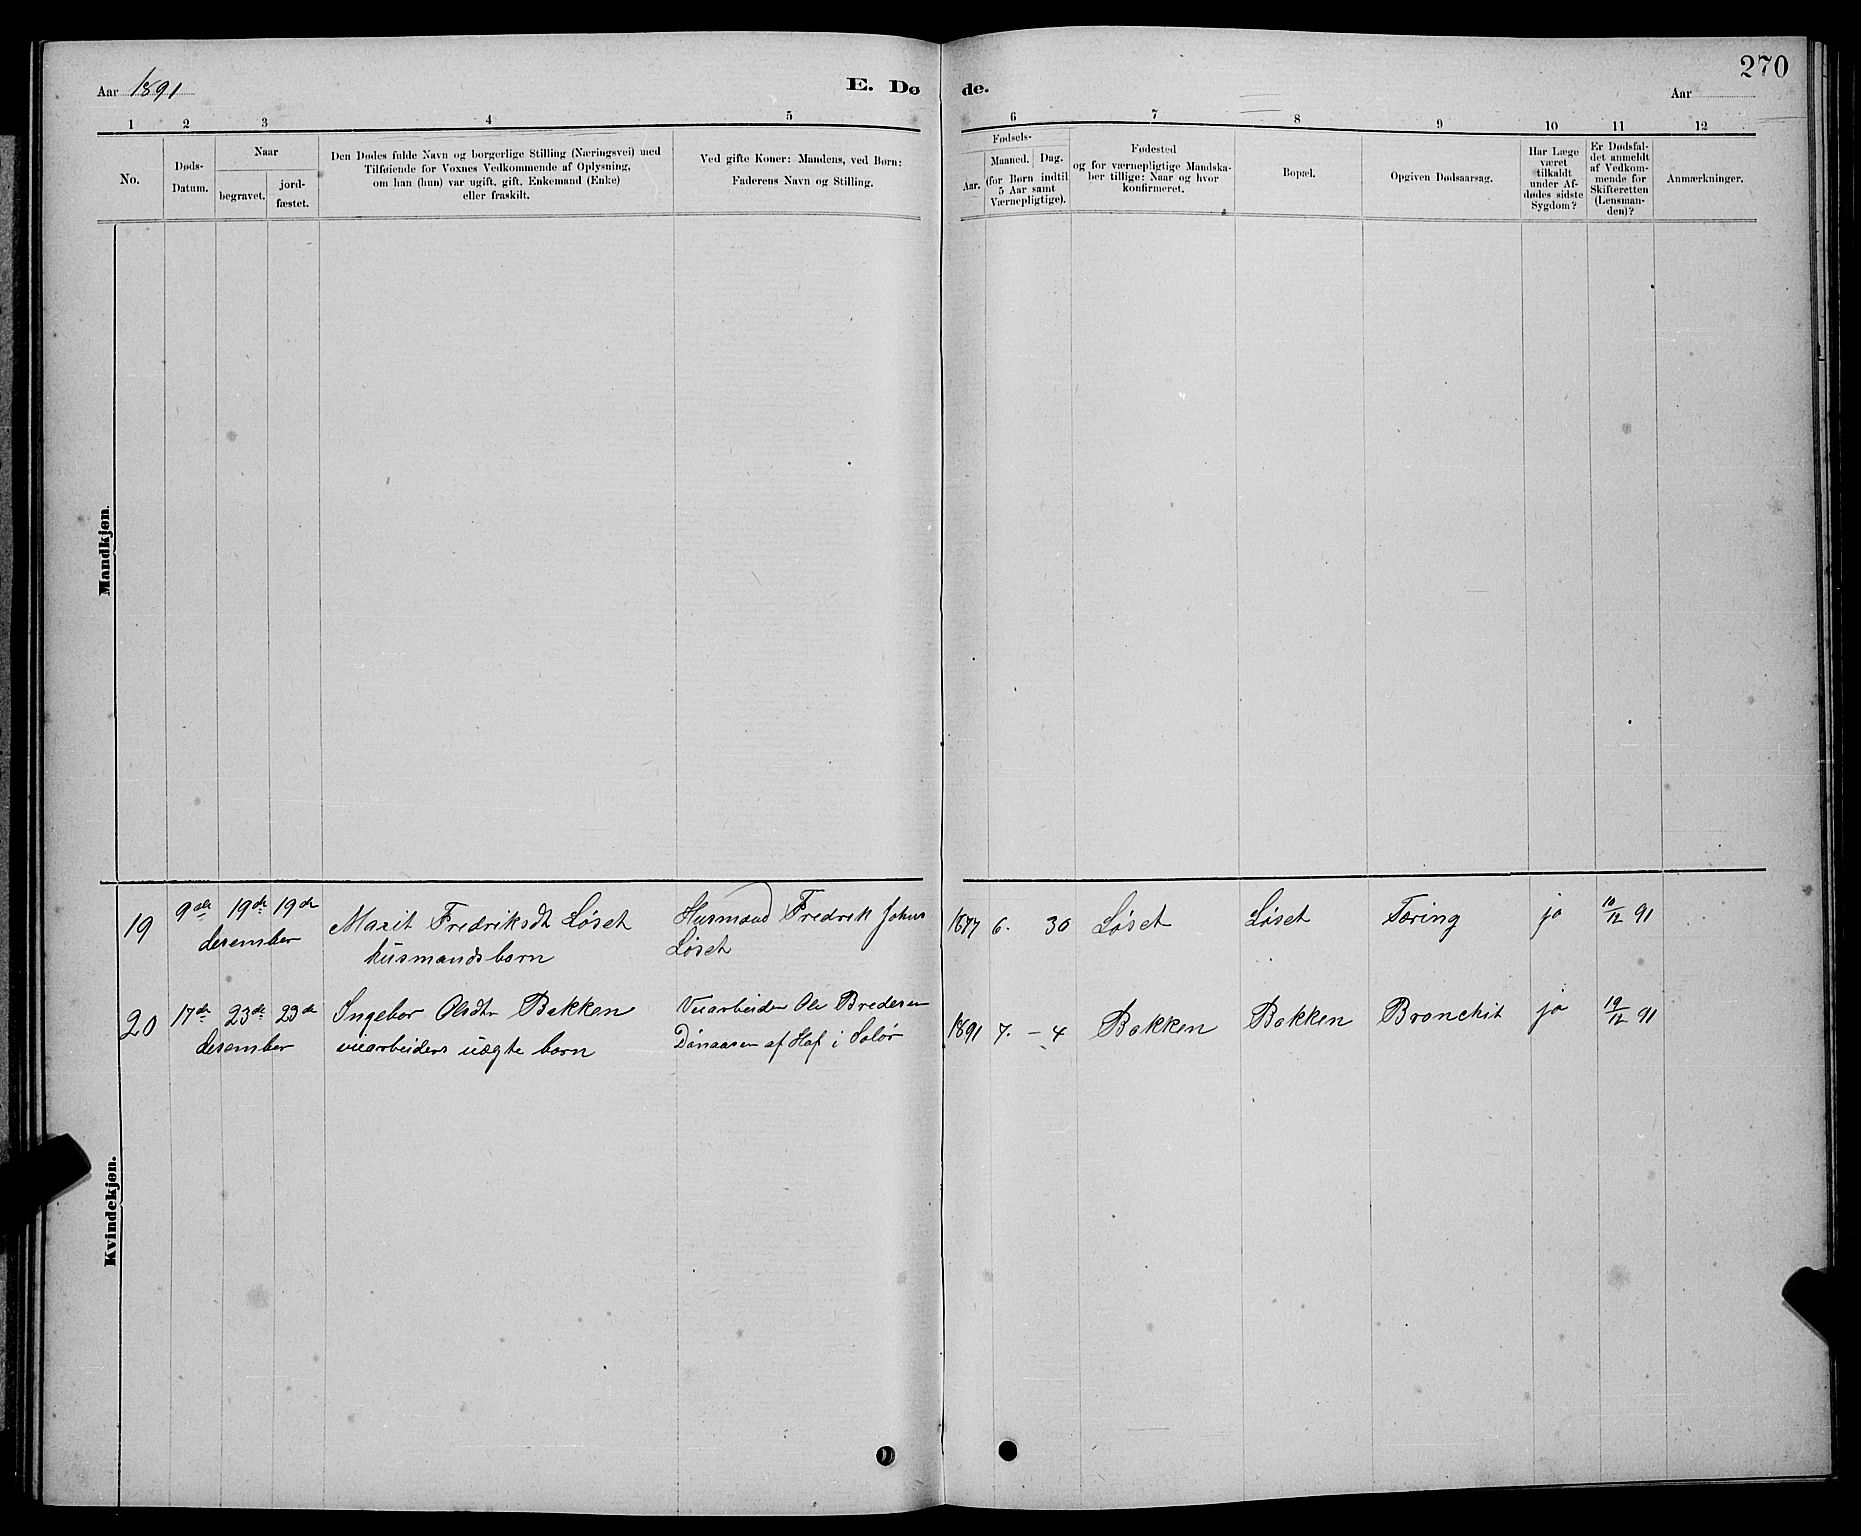 270
Aar 1891
E. Døde.
Aar
1 2 3 4 5 6 7 8 9 10 11 12
No.
Døds-
Datum.
Naar
begravet.
jord-
fæstet.
Den Dødes fulde Navn og borgerlige Stilling (Næringsvei) med
Tilføiende for Voxnes Vedkommende af Oplysning,
om han (hun) var ugift, gift, Enkemand (Enke)
eller fraskilt.
Ved gifte Koner: Mandens, ved Børn:
Faderens Navn og Stilling.
Fødsels-
Aar.
Maaned. Dag.
(for Børn indtil
5 Aar samt
Værnepligtige).
Fødested
og for værnepligtige Mandska-
ber tillige: Naar og hvor
konfirmeret.
Bopæl.
Opgiven Dødsaarsag.
Har Læge
været
tilkaldt
under Af-
dødes sidste
Sygdom?
Er Dødsfal-
det anmeldt
af Vedkom-
mende for
Skifteretten
(Lensman-
den)?
Anmærkninger.
Mandkjøn.
Kvindekjøn.
19 9de 19de 19de Marit Fredriksdt Løset Husmand Fredrik Johns 1877 6. 30 Løset Løset Tæring ja 10/12 91
desember husmandsbarn Løset
20 17de 23de 23de Ingebor Olsdtr Bakken Veiarbeider Ole Bredesen 1891 7. – 4 Bakken Bakken Bronchit ja 19/12 91
desember veiarbeiders uægte barn af Hof i Solør